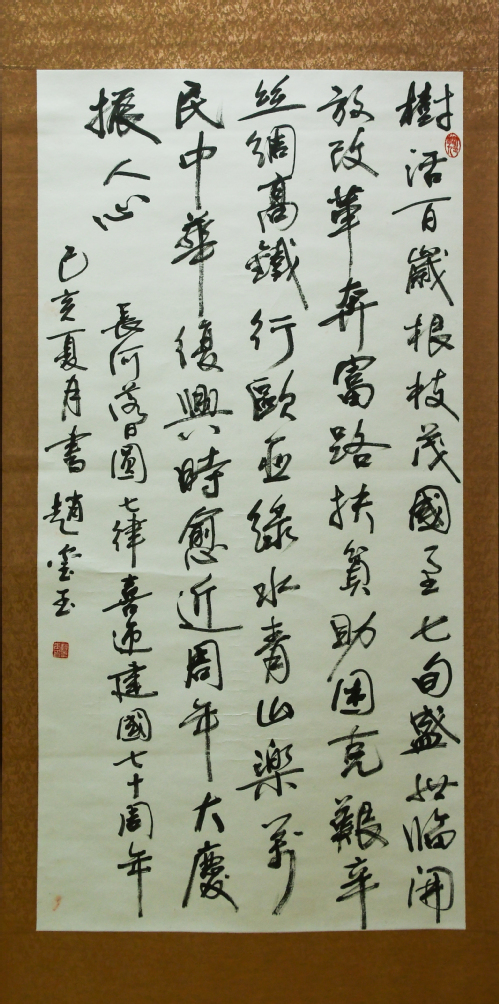 樹活百歲根枝茂國至七旬盛世臨開
放改革奔富路扶貧助困克艱辛
丝綢高鐵行歐亚綠水青山樂萬
民中華復興時愈近周年大慶
振人心
長河落日圓七律喜迎建國七十周年
己亥夏月書趙雲玉